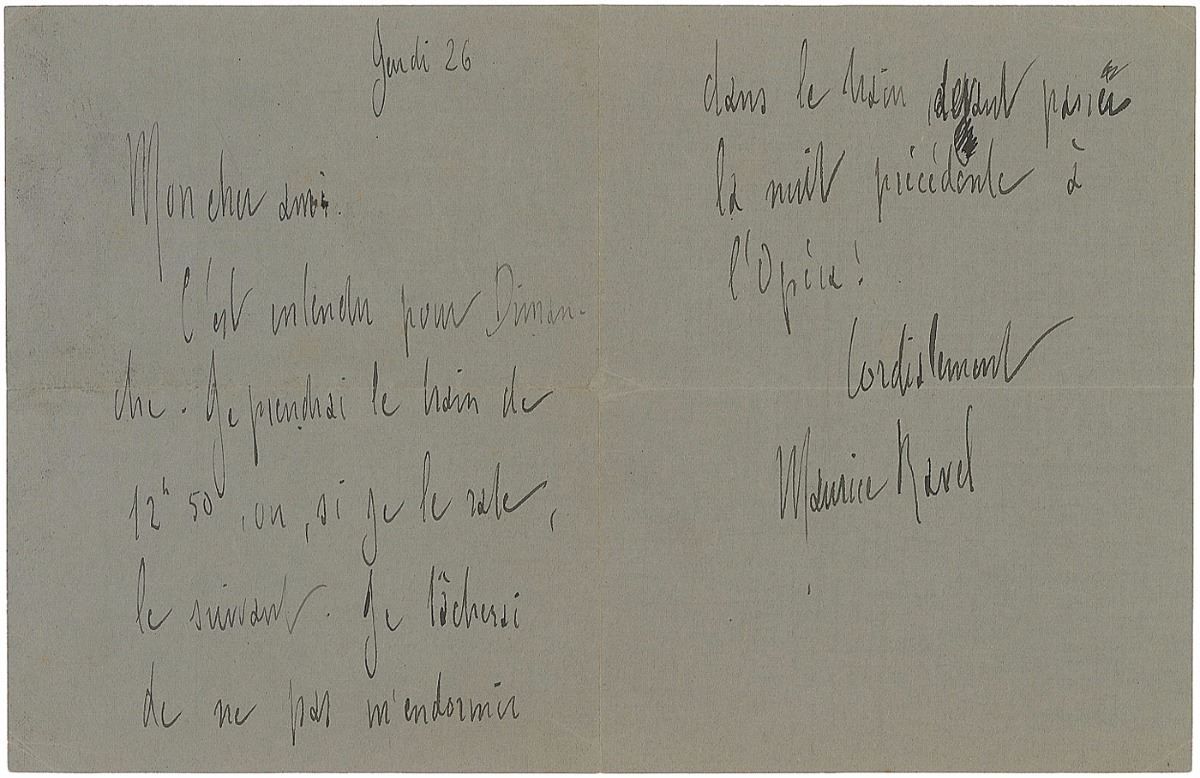 Jeudi 26
Mon cher ami.
C'est entendu pour Diman-
che. Je prendrai le train de
12h 50, ou, si je le rate,
le suivant. Je tâcherai
de ne pas m'endormir
dans le train devant passer
la nuit précédente à
l'Opéra!
Cordialement
Maurice Ravel